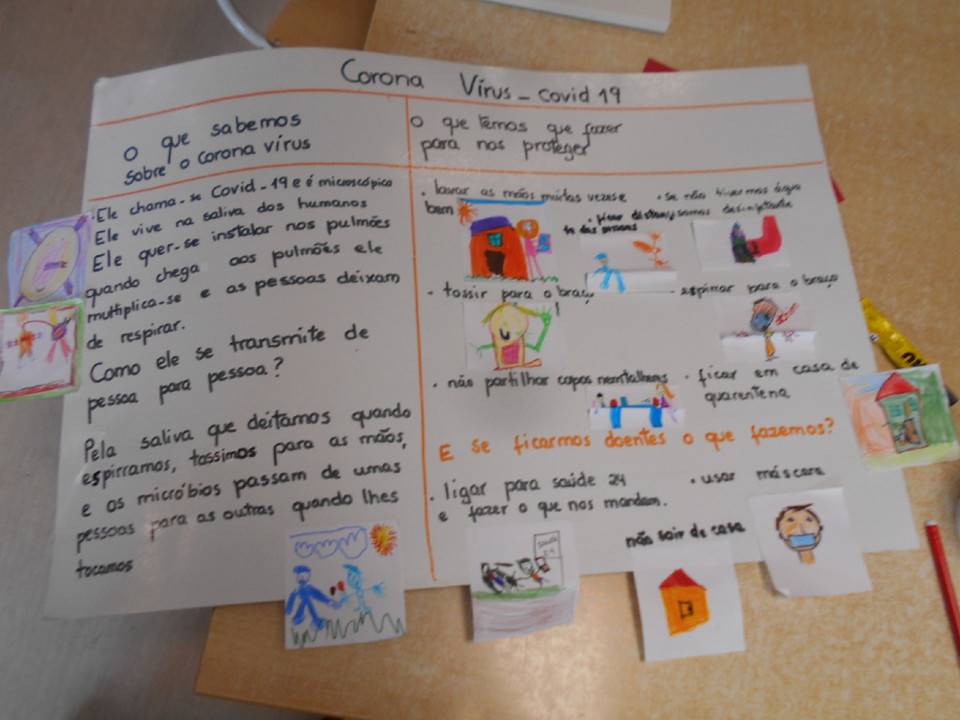 Corona Vírus - Covid 19
O que sabemos
sobre o corona vírus
. Ele chama-se Covid-19 e é microscópico
Ele vive na saliva dos humanos
Ele quer-se instalar nos pulmões
quando chega aos pulmões ele
multiplica-se e as pessoas deixam
de respirar.
Como ele se transmite de
pessoa para pessoa?
Pela saliva que deitamos quando
espirramos, tossimos para as mãos,
e os micróbios passam de umas
pessoas para as outras quando lhes
tocamos
O que têmos que fazer
para nos proteger
. lavar as mãos muitas vezes e
bem
. se não tivermos água
usamos desinfetante
. ficar distan
te das pessoas
. tossir para o braço
espirrar para o braço
. não partilhar copos nem talheres
. ficar em casa de
quarentena
E se ficarmos doentes o que fazemos?
. ligar para saúde 24
e fazer o que nos mandam.
. usar máscara
não sair de casa
Saúde
24